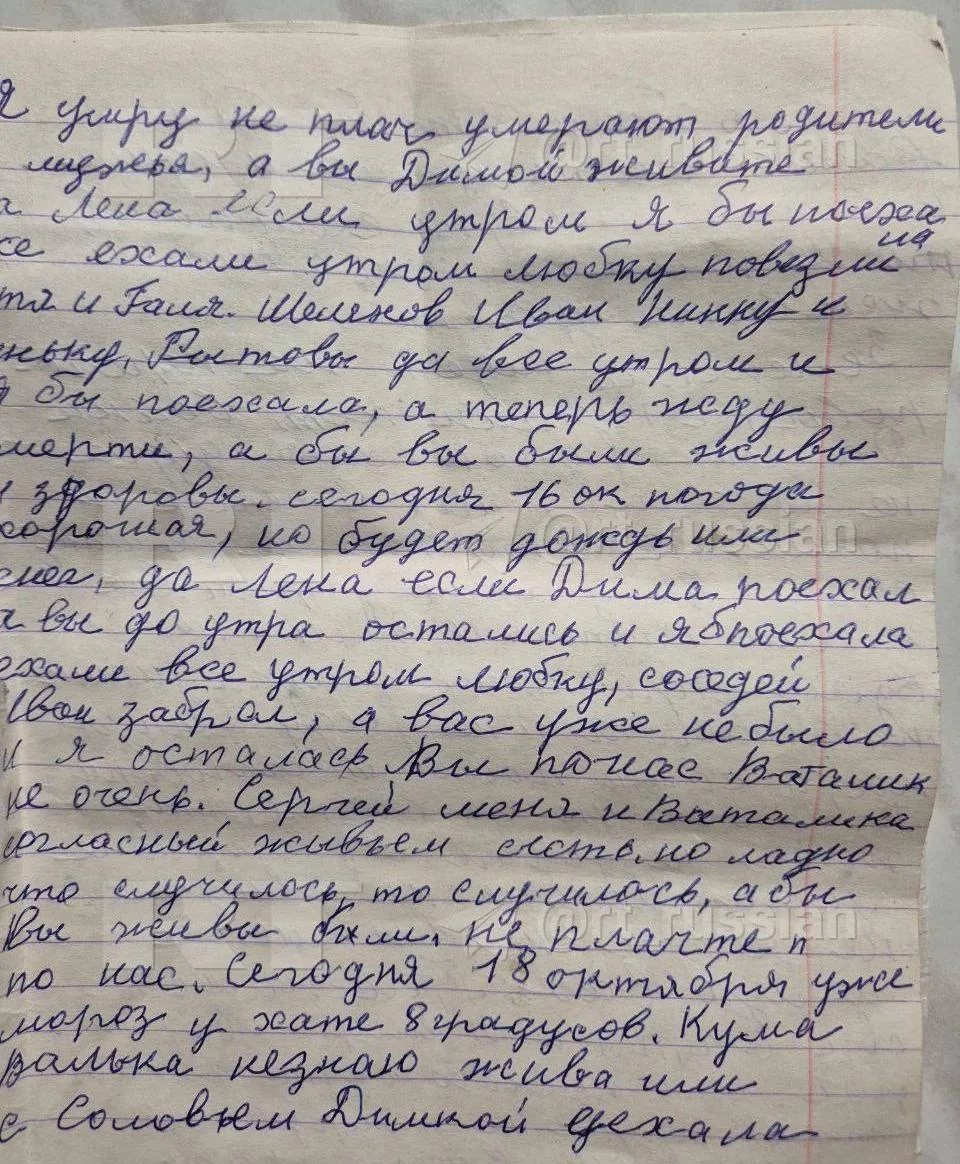 я умру не плач умерают родители
мужья, а вы Димой живите
а Лена если утром я бы поеха
се ехали утром любку повезли на
тя и Галя. Шеленов Иван Нинку и
ньку, да все утром и
я бы поехала, а теперь жду
мерти, а бы вы были живы
и здоровы. сегодня 16 ок погода
хорошая, но будет дождь или
снег, да Лена если Дима поехал
а вы до утра остались и я б поехала
ехали все утром любку, соседей
Иван забрал, а вас уже не было
и я осталась Вы по нас Ваталик
не очень. Сергей меня и Ваталика
согласный жывьем сьесть, но ладно
что случилось, то случилось, а бы
Вы живы были. не плачте п
по нас. Сегодня 18 октября уже
мороз у хате 8 градусов. Кума
валька незнаю жива или
с Соловьем Димкой уехала
@rt_russian
@rt_russian
@rt_russian